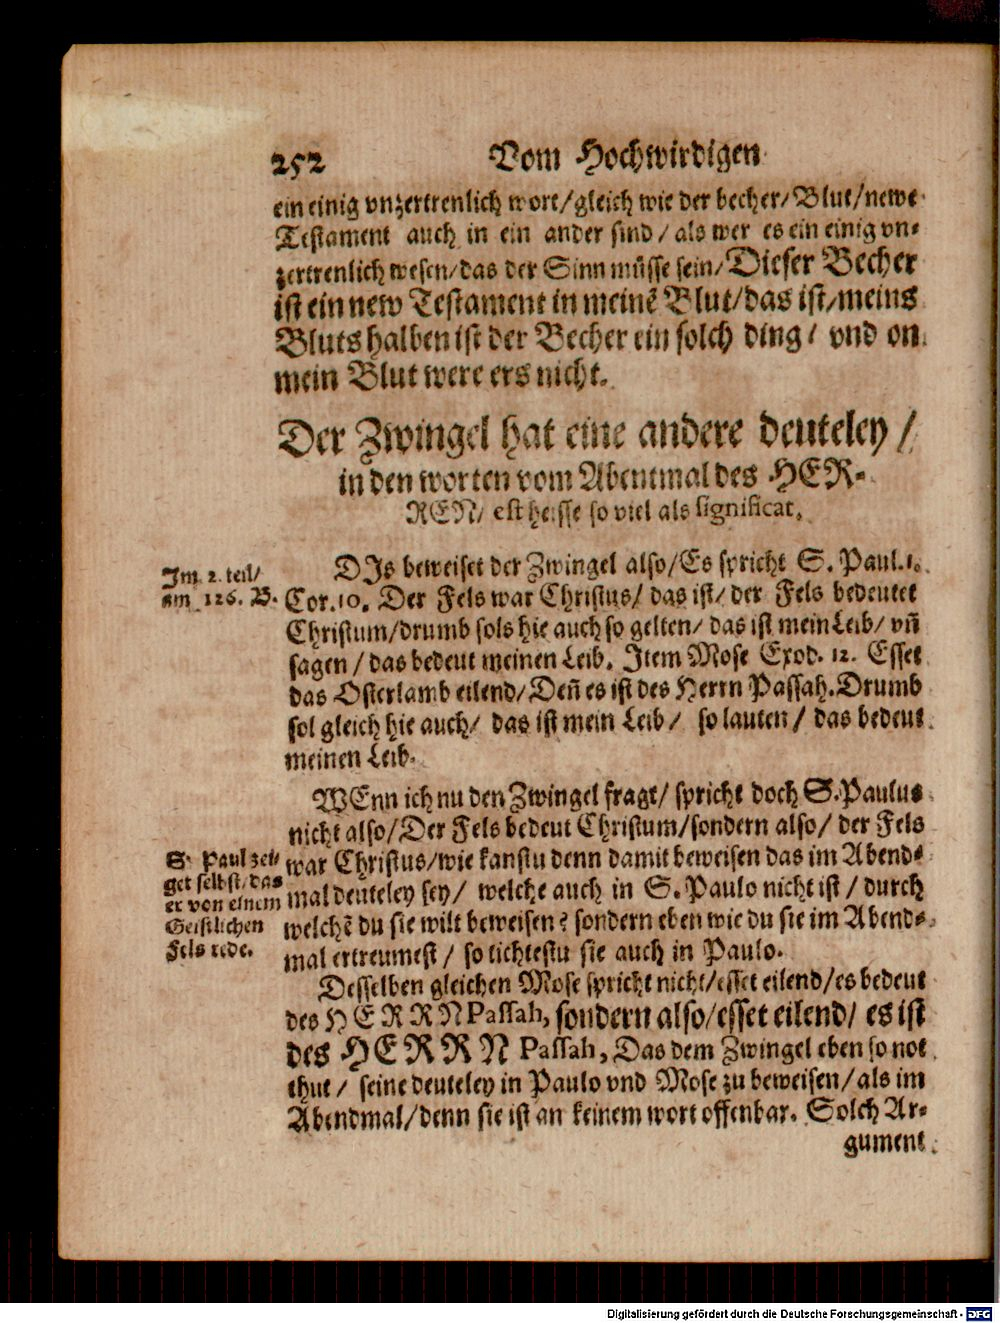 252 Vom Hochwirdigen
ein einig vnzertrenlich wort/gleich wie der becher/Blut/newe
Testament auch in ein ander sind/als wer es ein einig vn-
zertrenlich wesen/das der Sinn müsse sein/Dieser Becher
ist ein new Testament in meinē Blut/das ist/meins
Bluts halben ist der Becher ein solch ding/ vnd on
mein Blut were ers nicht.
Der Zwingel hat eine andere deuteley/
in den worten vom Abentmal des HER-
REN/ est heisse so viel als significat.
Im 2. teil/
am 126. B.
DIs beweiset der Zwingel also/Es spricht S. Paul.1.
Cor.10. Der Fels war Christus/ das ist/ der Fels bedeutet
Christum/drumb sols hie auch so gelten/ das ist mein Leib/ vn̄
sagen/das bedeut meinen Leib. Item Mose Exod. 12. Esset
das Osterlamb eilend/Den̄ es ist des Herrn Passah.Drumb
sol gleich hie auch/ das ist mein Leib/ so lauten/ das bedeut
meinen Leib.
WEnn ich nu den Zwingel fragt/ spricht doch S.Paulus
nicht also/Der Fels bedeut Christum/sondern also/ der Fels
S. Paul zei-
get selbst/das
er von einem
Geistlichen
Fels rede.
war Christus/wie kanstu denn damit beweisen das im Abend-
mal deuteley sey/ welche auch in S. Paulo nicht ist/durch
welchē du sie wilt beweisen? sondern eben wie du sie im Abend-
mal ertreumest/ so tichtestu sie auch in Paulo.
Desselben gleichen Mose spricht nicht/esset eilend/es bedeut
des HERRN Passah, sondern also/esset eilend/ es ist
des HERRN Passah, Das dem Zwingel eben so not
thut/ seine deuteley in Paulo vnd Mose zu beweisen/als im
Abendmal/denn sie ist an keinem wort offenbar. Solch Ar-
gument
Digitalisierung gefördert durch die Deutsche Forschungsgemeinschaft - DFG